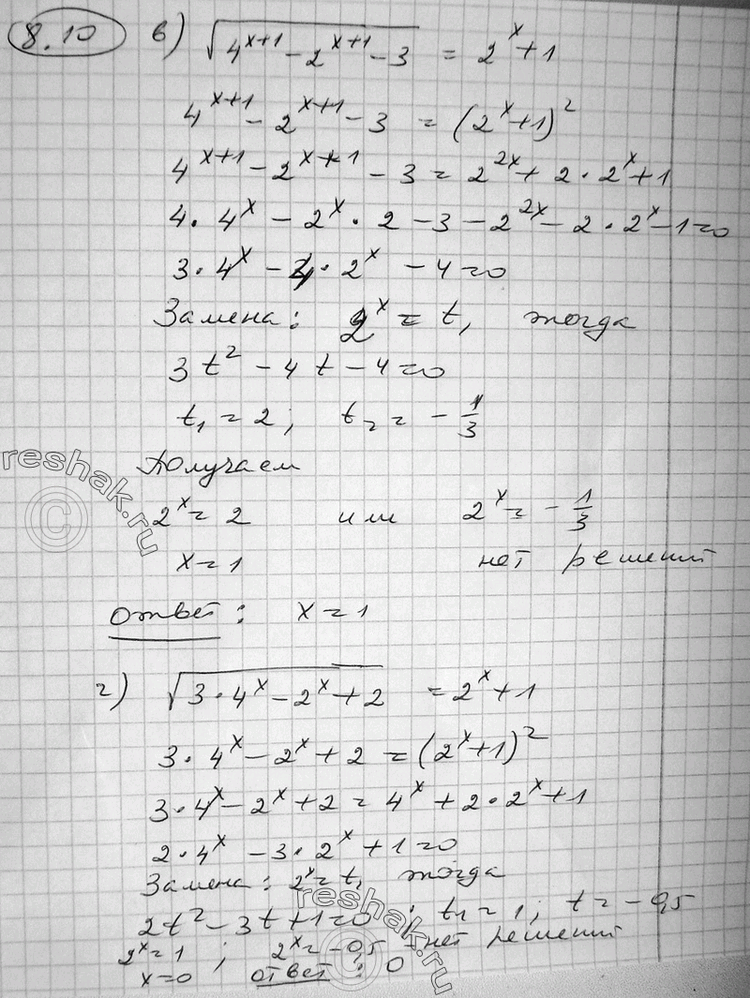 8.10 в) √(4^(x+1) - 2^(x+1) - 3) = 2^x + 1
4^(x+1) - 2^(x+1) - 3 = (2^x + 1)^2
4^(x+1) - 2^(x+1) - 3 = 2^(2x) + 2 · 2^x + 1
4 · 4^x - 2^x · 2 - 3 - 2^(2x) - 2 · 2^x - 1 = 0
3 · 4^x - 4 · 2^x - 4 = 0
Замена: 2^x = t, тогда
3t^2 - 4t - 4 = 0
t₁ = 2; t₂ = -1/3
Получаем
2^x = 2 или 2^x = -1/3
x = 1 нет решений
Ответ: x = 1
г) √(3 · 4^x - 2^x + 2) = 2^x + 1
3 · 4^x - 2^x + 2 = (2^x + 1)^2
3 · 4^x - 2^x + 2 = 4^x + 2 · 2^x + 1
2 · 4^x - 3 · 2^x + 1 = 0
Замена: 2^x = t, тогда
2t^2 - 3t + 1 = 0; t₁ = 1; t = -0,5
2^x = 1; 2^x = -0,5 - нет решений
x = 0 Ответ: 0
© reshak.ru
© reshak.ru